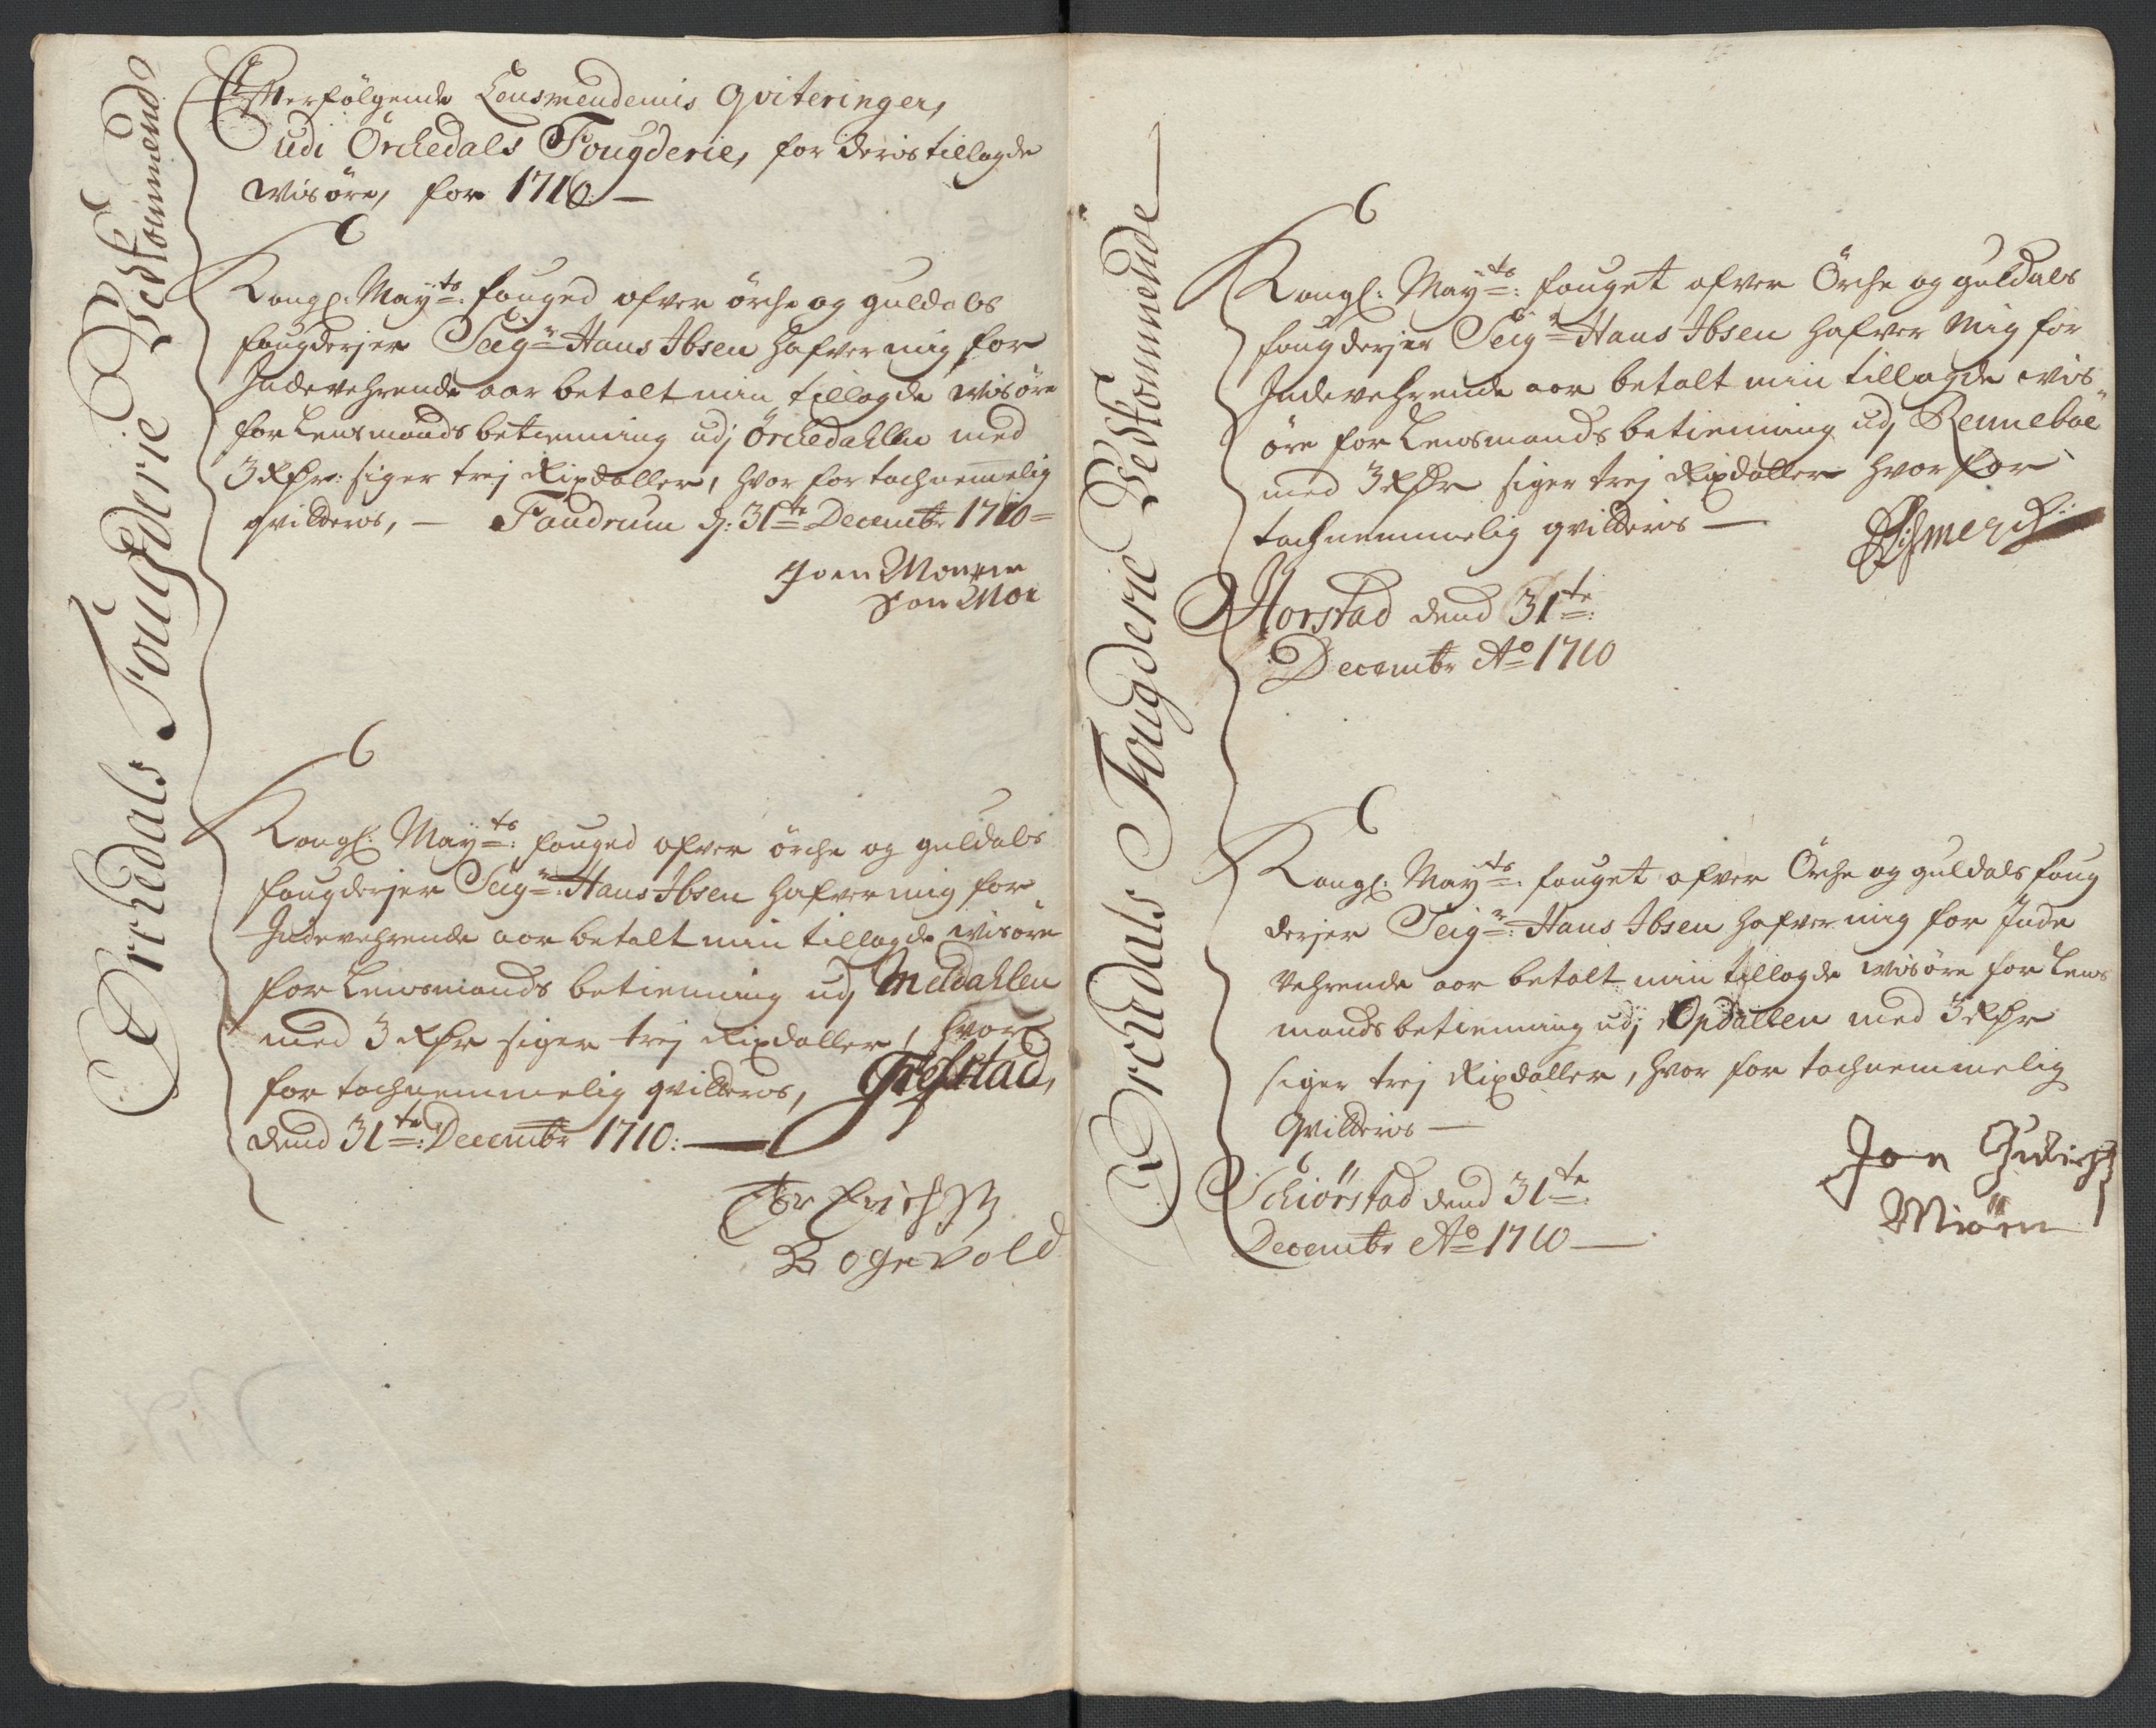 Orchedals Fougderie Vedkommende
Efterfølgende Lensmendenis Qviteringer,
udi Örchedals Fougderie, for deris tillagde
visöre, for 1710 —
Kongl: Mayts: fouged ofver örche og guldals
fougderjer Seigr Hans Ibsen hafver mig for
Indeverhrende aar betalt min tillagde visöre
for Lensmands betienning udj Örchedahlen med
3 Rdr: siger trej Rixdaller, hvor for tachnemmelig
qvitteris, — Fandrum d: 31te Decembr 1710 =
Joen
Kongl: Mayts: fouged ofver örche og guldals
fougderjer Seigr: Hans Ibsen hafver mig for
Indevehrende aar betalt min tillagde visöre
for Lensmands betienning udj Meldahlen
med 3 Rdr siger trej Rixdaller, hvor
for tachnemmelig qvitteris, Grefstad,
dend 31te: Decembr 1710: —
Bogevold
Orchedals Fougderie Vedkommende —
Kongl: Mayts: fouget ofver Örche og guldals
fougderjer Seigr Hans Ibsen hafver mig for
Indevehrende aar betalt min tillagde vis
öre for Lensmands betienning udj Renneboe
med 3 Rdr siger trej Rixdaller hvor for
tachnemmelig qvitteris —
Horstad dend 31te:
Decembr Ao 1710
Kongl: Mayts: fouget ofver Örche og guldals foug
derjer Seigr: Hans Ibsen hafver mig for Inde
vehrende aar betalt min tillagde visöre for Lens
mands betienning udj Opdallen med 3 Rdr
siger trej Rixdaller, hvor for tachnemmelig
Qvitteris —
Schiørstad dend 31te:
Decembr Ao 1710 —
Jon
Miöen